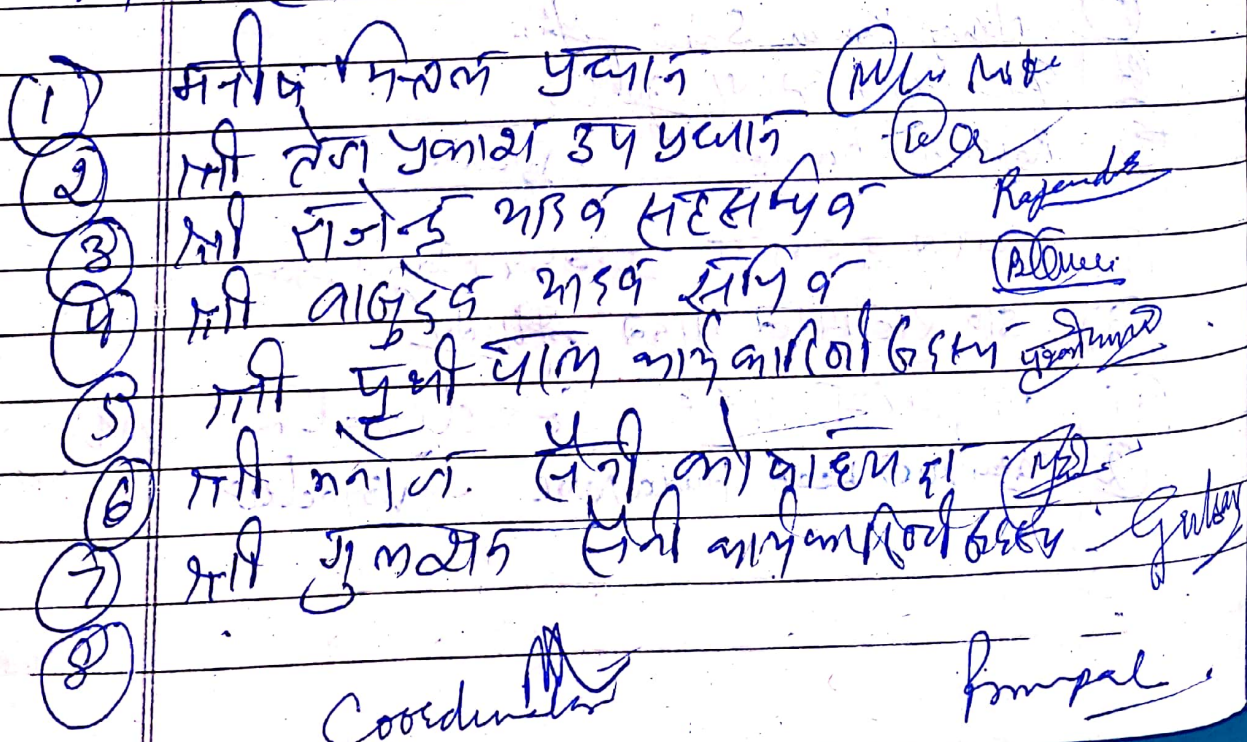 ① मनीष मित्तल प्रधान
② श्री तेज प्रकाश उप प्रधान
③ श्री राजेन्द्र यादव सहसचिव Rajendra
④ श्री वासुदेव यादव सचिव
⑤ श्री पृथी पाल कार्यकारिणी सदस्य
⑥ श्री मनोज सैनी कोषाध्यक्ष
⑦ श्री गुलशन सैनी कार्यकारिणी सदस्य Gulshan
⑧
Coordinator Principal